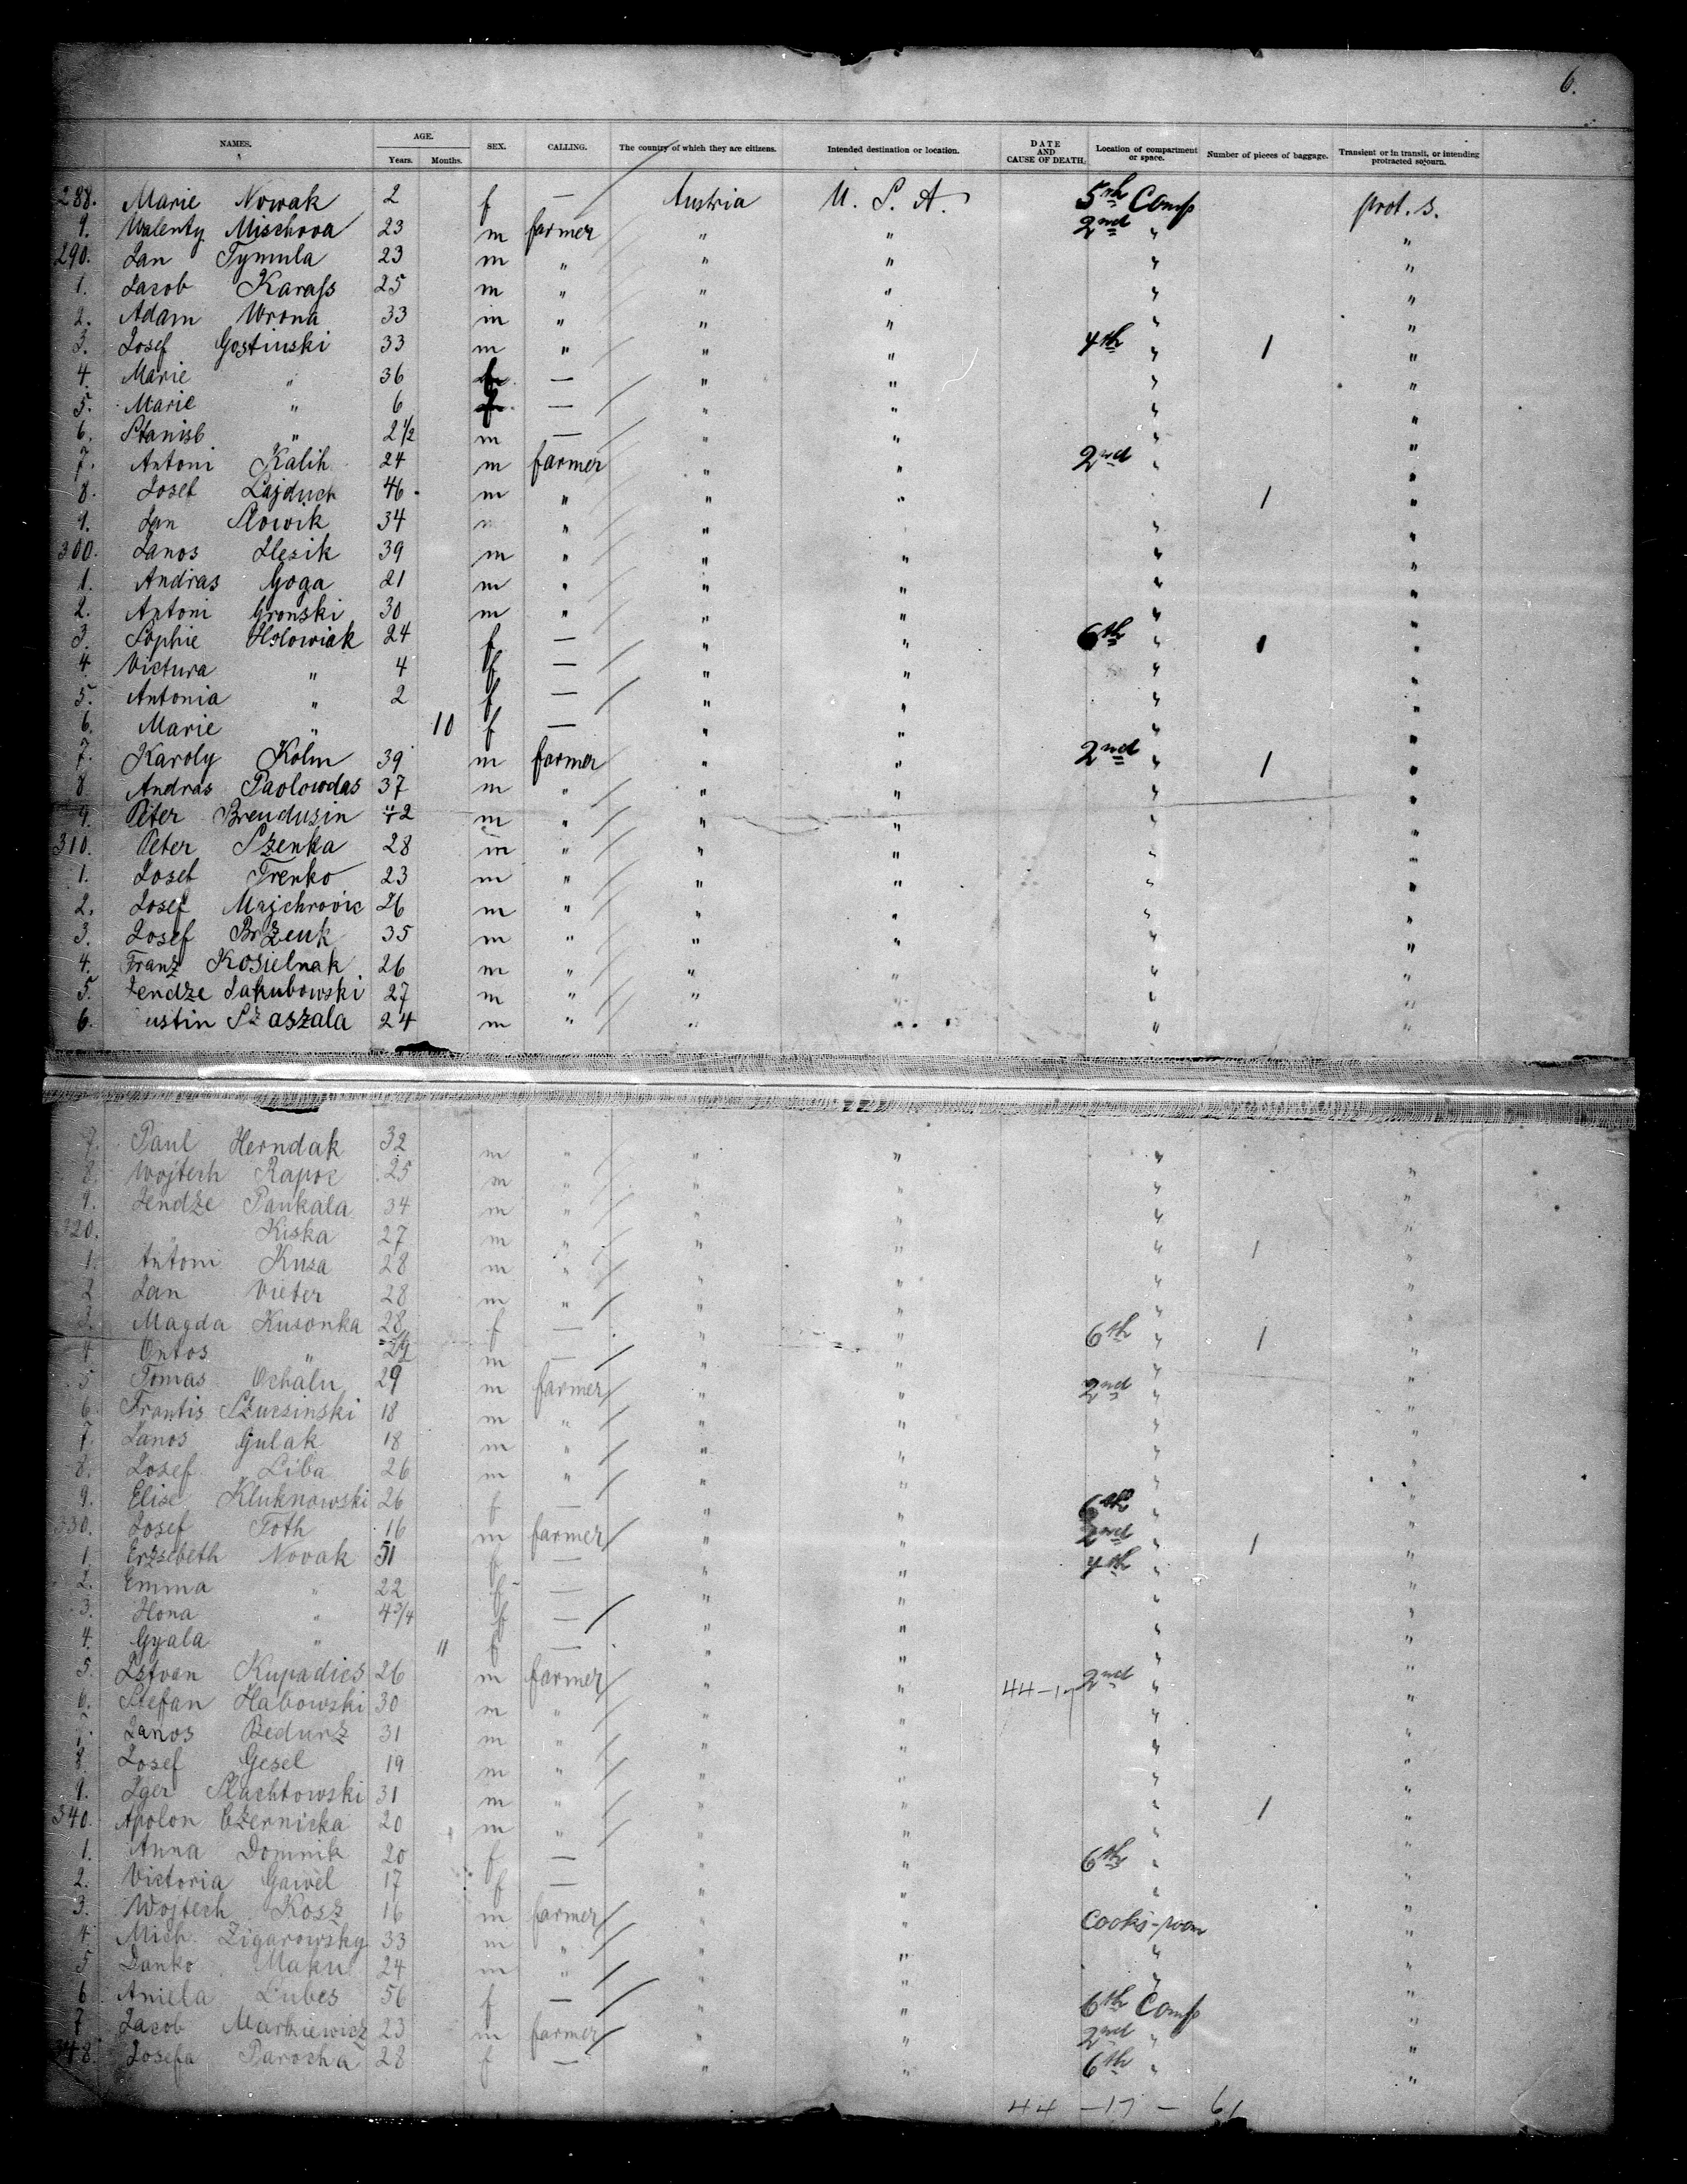 6.
NAMES. AGE. Years. Months. SEX. CALLING. The country of which they are citizens. Intended destination or location. DATE AND CAUSE OF DEATH. Location of compartment or space. Number of pieces of baggage. Transient or in transit, or intending protracted sojourn.
288. Marie Nowak 2 f — Austria U. S. A. 5th Comp prot. s.
9. Walenty Mischova 23 m farmer " " 2nd " "
290. Jan Tymula 23 m " " " " "
1. Jacob Karass 25 m " " " " "
2. Adam Wrona 33 m " " " " "
3. Josef Gostinski 33 m " " " 4th " 1 "
4. Marie " 36 f — " " " "
5. Marie " 6 f — " " " "
6. Stanisl " 2 1/2 m — " " " "
7. Antoni Kalih 24 m farmer " " 2nd " "
8. Josef Lajduch 46 m " " " 1 "
9. Jan Slowik 34 m " " " "
300. Janos Ilesik 39 m " " " " "
1. Andras Goga 21 m " " " " "
2. Antoni Gronski 30 m " " " " "
3. Sophie Holowiak 24 f — " " 6th " 1 "
4. Victura " 4 f — " " " "
5. Antonia " 2 f — " " " "
6. Marie " 10 f — " " " "
7. Karoly Kolm 39 m farmer " " 2nd " 1 "
8. Andras Paolowdas 37 m " " " " "
9. Peter Brendusin 42 m " " " " "
310. Peter Szenka 28 m " " " " "
1. Josef Trenko 23 m " " " " "
2. Josef Majchrovic 26 m " " " " "
3. Josef Brzeuk 35 m " " " " "
4. Franz Kosielnak 26 m " " " " "
5. Jendze Jakubowski 27 m " " " " "
6. ustin Szaszala 24 m " " " " "
7. Paul Herndak 32 m " " " " "
8. Wojtech Rapoc 25 m " " " " "
9. Jendze Pankala 34 m " " " " "
320. " Kiska 27 m " " " " 1 "
1. Antoni Kusa 28 m " " " " "
2 Jan Vieter 28 m " " " " "
3. Magda Kusonka 28 f — " " 6th " 1 "
4 Ontos " m — " " " "
5 Tomas Ochaln 29 m farmer " " 2nd " "
6. Frantis Szucsinski 18 m " " " " "
7. Janos Gulak 18 m " " " " "
8. Josef Liba 26 m " " " " "
9. Elise Kluknowski 26 f — " " 6th " "
330. Josef Toth 16 m farmer " " 2nd " 1 "
1. Erzsebeth Novak 51 f — " " 4th " "
2. Emma " 22 f — " " " "
3. Ilona " 4 3/4 f — " " " "
4. Gyala " 11 f — " " " "
5. Istvan Kupadics 26 m farmer " " 44–17 2nd " "
6. Stefan Habowski 30 m " " " " "
7. Janos Bedurz 31 m " " " " "
8. Josef Gesel 19 m " " " " "
9. Iger Slachtowski 31 m " " " " 1 "
340. Apolon Czernicka 20 m " " " " "
1. Anna Domnik 20 f — " " 6th " "
2. Victoria Gawel 17 f — " " " "
3. Wojtech Kosz 16 m farmer " " Cooks-room "
4. Mich. Zigarowsky 33 m " " " " "
5 Danko Maku 24 m " " " " "
6 Aniela Lubes 56 f — " " 6th Comp "
7 Jacob Markiewicz 23 m farmer " " 2nd " "
348. Josefa Parocha 28 f — " " 6th " "
44 – 17 – 61